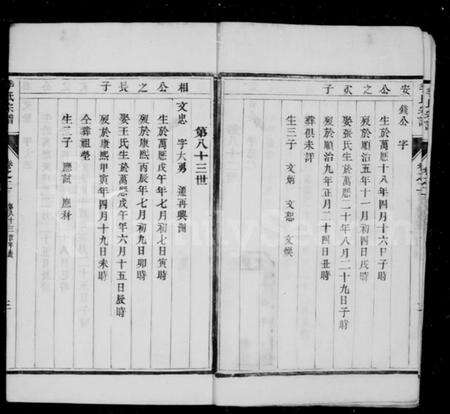 安錢公 字
公 生於萬曆十八年四月十六日子時
之 歿於順治五年十一月初四日戌時
次 娶張氏生於萬曆二十年八月二十九日子時
子 歿於順治九年正月二十四日丑時
葬俱未詳
生三子 文炳 文恕 文煥
第八十三世
相 文忠 字大勇 遷再興湖
公 生於萬曆戊午年七月初九日寅時
之 歿於康熙丙辰年七月初九日卯時
長 娶王氏生於萬曆戊午年六月十五日辰時
子 歿於康熙甲寅年四月十九日未時
仝葬祖塋
生二子 應試 應科
李氏宗譜 卷之二